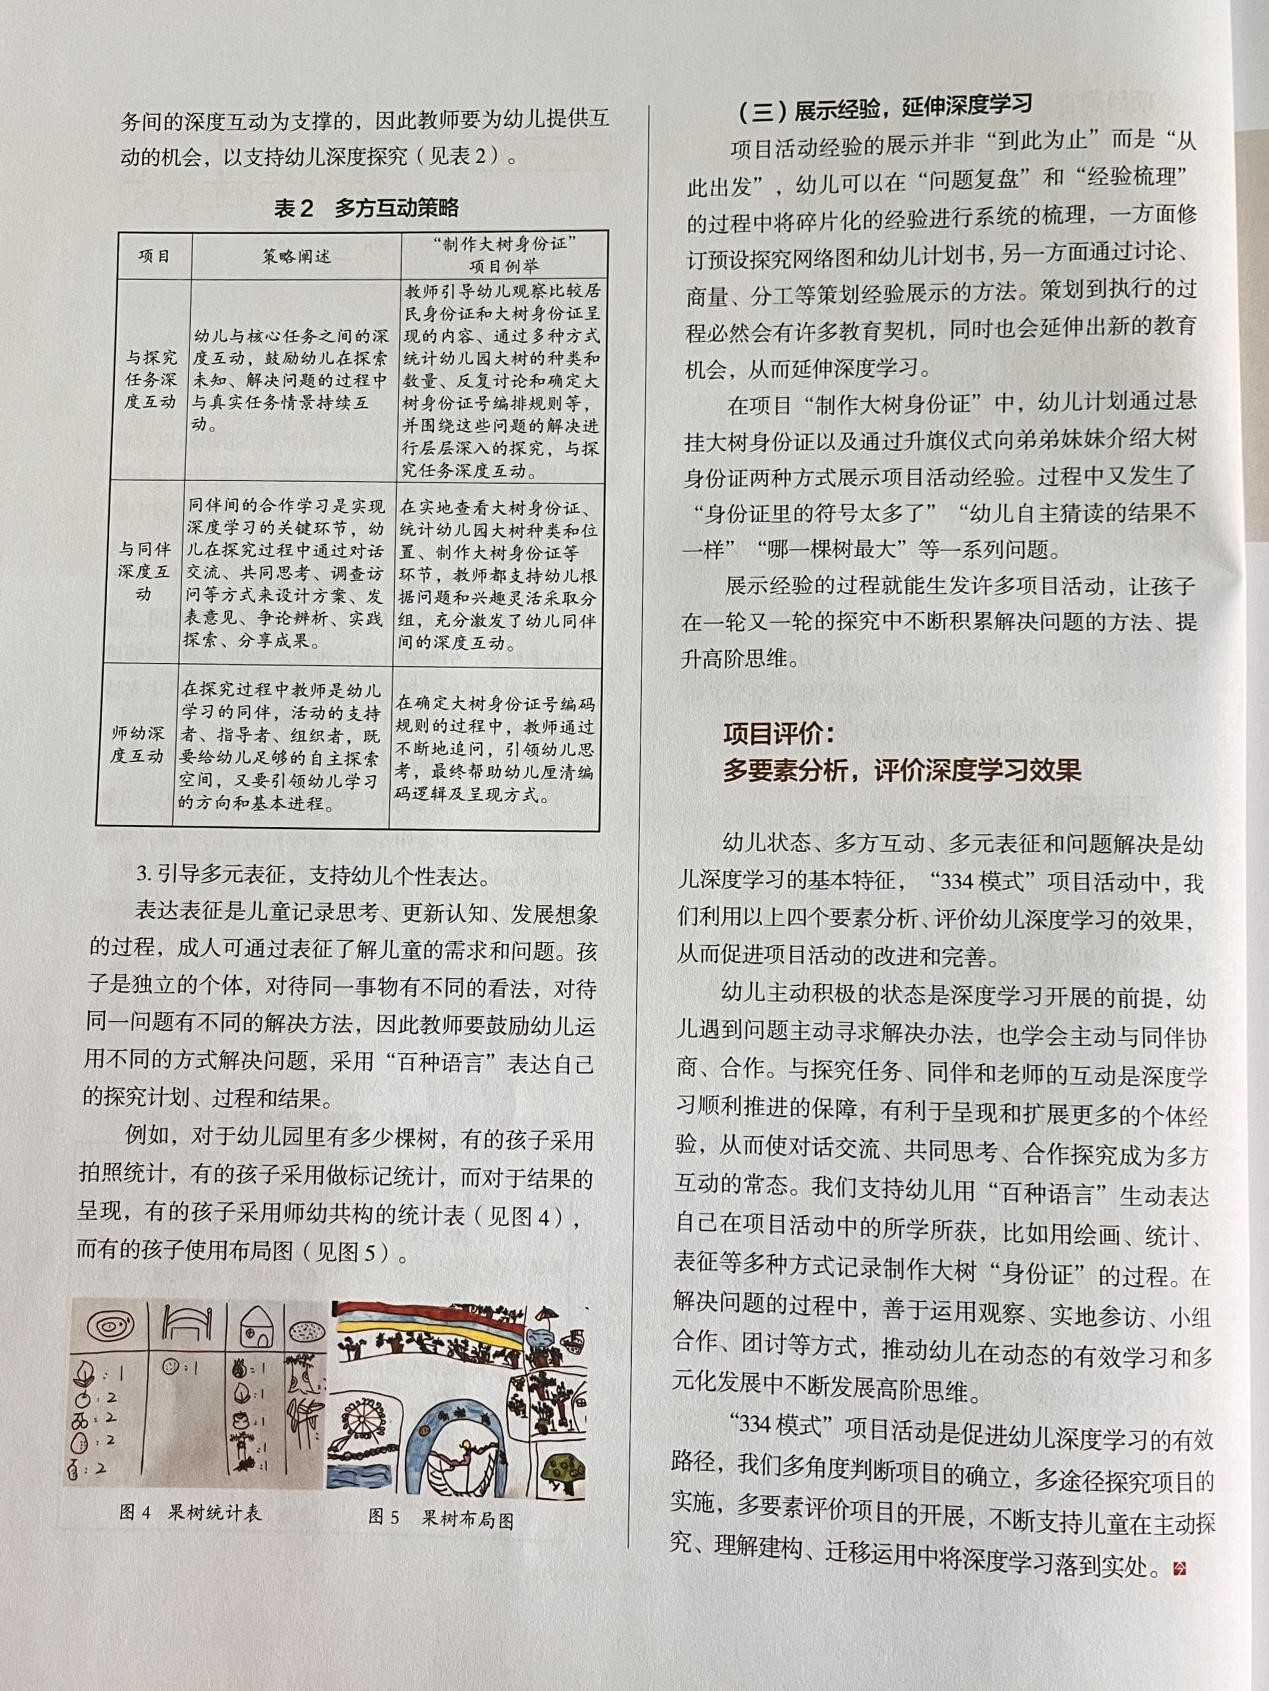 务间的深度互动为支撑的，因此教师要为幼儿提供互
动的机会，以支持幼儿深度探究（见表2）。
表2 多方互动策略
项目
策略阐述
“制作大树身份证”
项目例举
与探究
任务深
度互动
幼儿与核心任务之间的深
度互动，鼓励幼儿在探索
未知、解决问题的过程中
与真实任务情景持续互
动。
教师引导幼儿观察比较居
民身份证和大树身份证呈
现的内容、通过多种方式
统计幼儿园大树的种类和
数量、反复讨论和确定大
树身份证号编排规则等，
并围绕这些问题的解决进
行层层深入的探究，与探
究任务深度互动。
与同伴
深度互
动
同伴间的合作学习是实现
深度学习的关键环节，幼
儿在探究过程中通过对话
交流、共同思考、调查访
问等方式来设计方案、发
表意见、争论辨析、实践
探索、分享成果。
在实地查看大树身份证、
统计幼儿园大树种类和位
置、制作大树身份证等
环节，教师都支持幼儿根
据问题和兴趣灵活采取分
组，充分激发了幼儿同伴
间的深度互动。
师幼深
度互动
在探究过程中教师是幼儿
学习的同伴，活动的支持
者、指导者、组织者，既
要给幼儿足够的自主探索
空间，又要引领幼儿学习
的方向和基本进程。
在确定大树身份证号编码
规则的过程中，教师通过
不断地追问，引领幼儿思
考，最终帮助幼儿厘清编
码逻辑及呈现方式。
3. 引导多元表征，支持幼儿个性表达。
表达表征是儿童记录思考、更新认知、发展想象
的过程，成人可通过表征了解儿童的需求和问题。孩
子是独立的个体，对待同一事物有不同的看法，对待
同一问题有不同的解决方法，因此教师要鼓励幼儿运
用不同的方式解决问题，采用“百种语言”表达自己
的探究计划、过程和结果。
例如，对于幼儿园里有多少棵树，有的孩子采用
拍照统计，有的孩子采用做标记统计，而对于结果的
呈现，有的孩子采用师幼共构的统计表（见图4），
而有的孩子使用布局图（见图5）。
:1
:2
:2
:2
:2
:1
:1
:1
:1
:1
:1
图4 果树统计表
图5 果树布局图
（三）展示经验，延伸深度学习
项目活动经验的展示并非“到此为止”而是“从
此出发”，幼儿可以在“问题复盘”和“经验梳理”
的过程中将碎片化的经验进行系统的梳理，一方面修
订预设探究网络图和幼儿计划书，另一方面通过讨论、
商量、分工等策划经验展示的方法。策划到执行的过
程必然会有许多教育契机，同时也会延伸出新的教育
机会，从而延伸深度学习。
在项目“制作大树身份证”中，幼儿计划通过悬
挂大树身份证以及通过升旗仪式向弟弟妹妹介绍大树
身份证两种方式展示项目活动经验。过程中又发生了
“身份证里的符号太多了”“幼儿自主猜读的结果不
一样”“哪一棵树最大”等一系列问题。
展示经验的过程就能生发许多项目活动，让孩子
在一轮又一轮的探究中不断积累解决问题的方法、提
升高阶思维。
项目评价：
多要素分析，评价深度学习效果
幼儿状态、多方互动、多元表征和问题解决是幼
儿深度学习的基本特征，“334模式”项目活动中，我
们利用以上四个要素分析、评价幼儿深度学习的效果，
从而促进项目活动的改进和完善。
幼儿主动积极的状态是深度学习开展的前提，幼
儿遇到问题主动寻求解决办法，也学会主动与同伴协
商、合作。与探究任务、同伴和老师的互动是深度学
习顺利推进的保障，有利于呈现和扩展更多的个体经
验，从而使对话交流、共同思考、合作探究成为多方
互动的常态。我们支持幼儿用“百种语言”生动表达
自己在项目活动中的所学所获，比如用绘画、统计、
表征等多种方式记录制作大树“身份证”的过程。在
解决问题的过程中，善于运用观察、实地参访、小组
合作、团讨等方式，推动幼儿在动态的有效学习和多
元化发展中不断发展高阶思维。
“334模式”项目活动是促进幼儿深度学习的有效
路径，我们多角度判断项目的确立，多途径探究项目的
实施，多要素评价项目的开展，不断支持儿童在主动探
究、理解建构、迁移运用中将深度学习落到实处。今